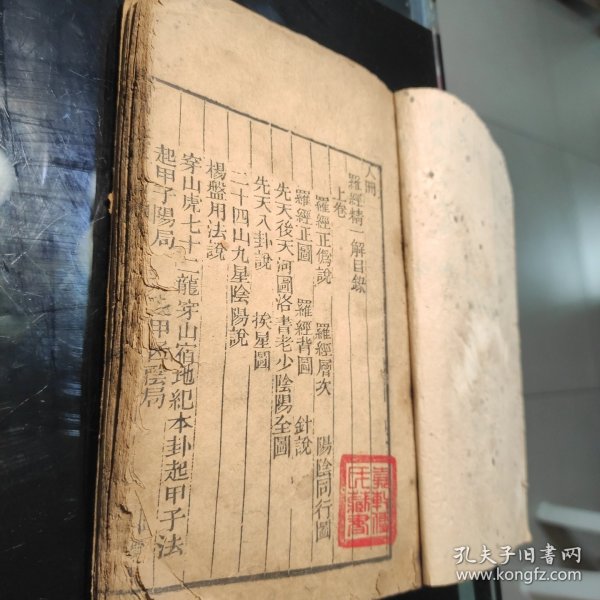 人冊
羅經精一解目錄
上卷
羅經正僞說 羅經層次 陽陰同行圖
羅經正圖 羅經背圖 針說
先天後天河圖洛書老少陰陽全圖
先天八卦說 挨星圖
二十四山九星陰陽說
楊盤用法說
穿山虎七十二龍穿山宿地紀本卦起甲子法
起甲子陽局 甲子陰局
孔夫子旧书网
www.kongfz.com